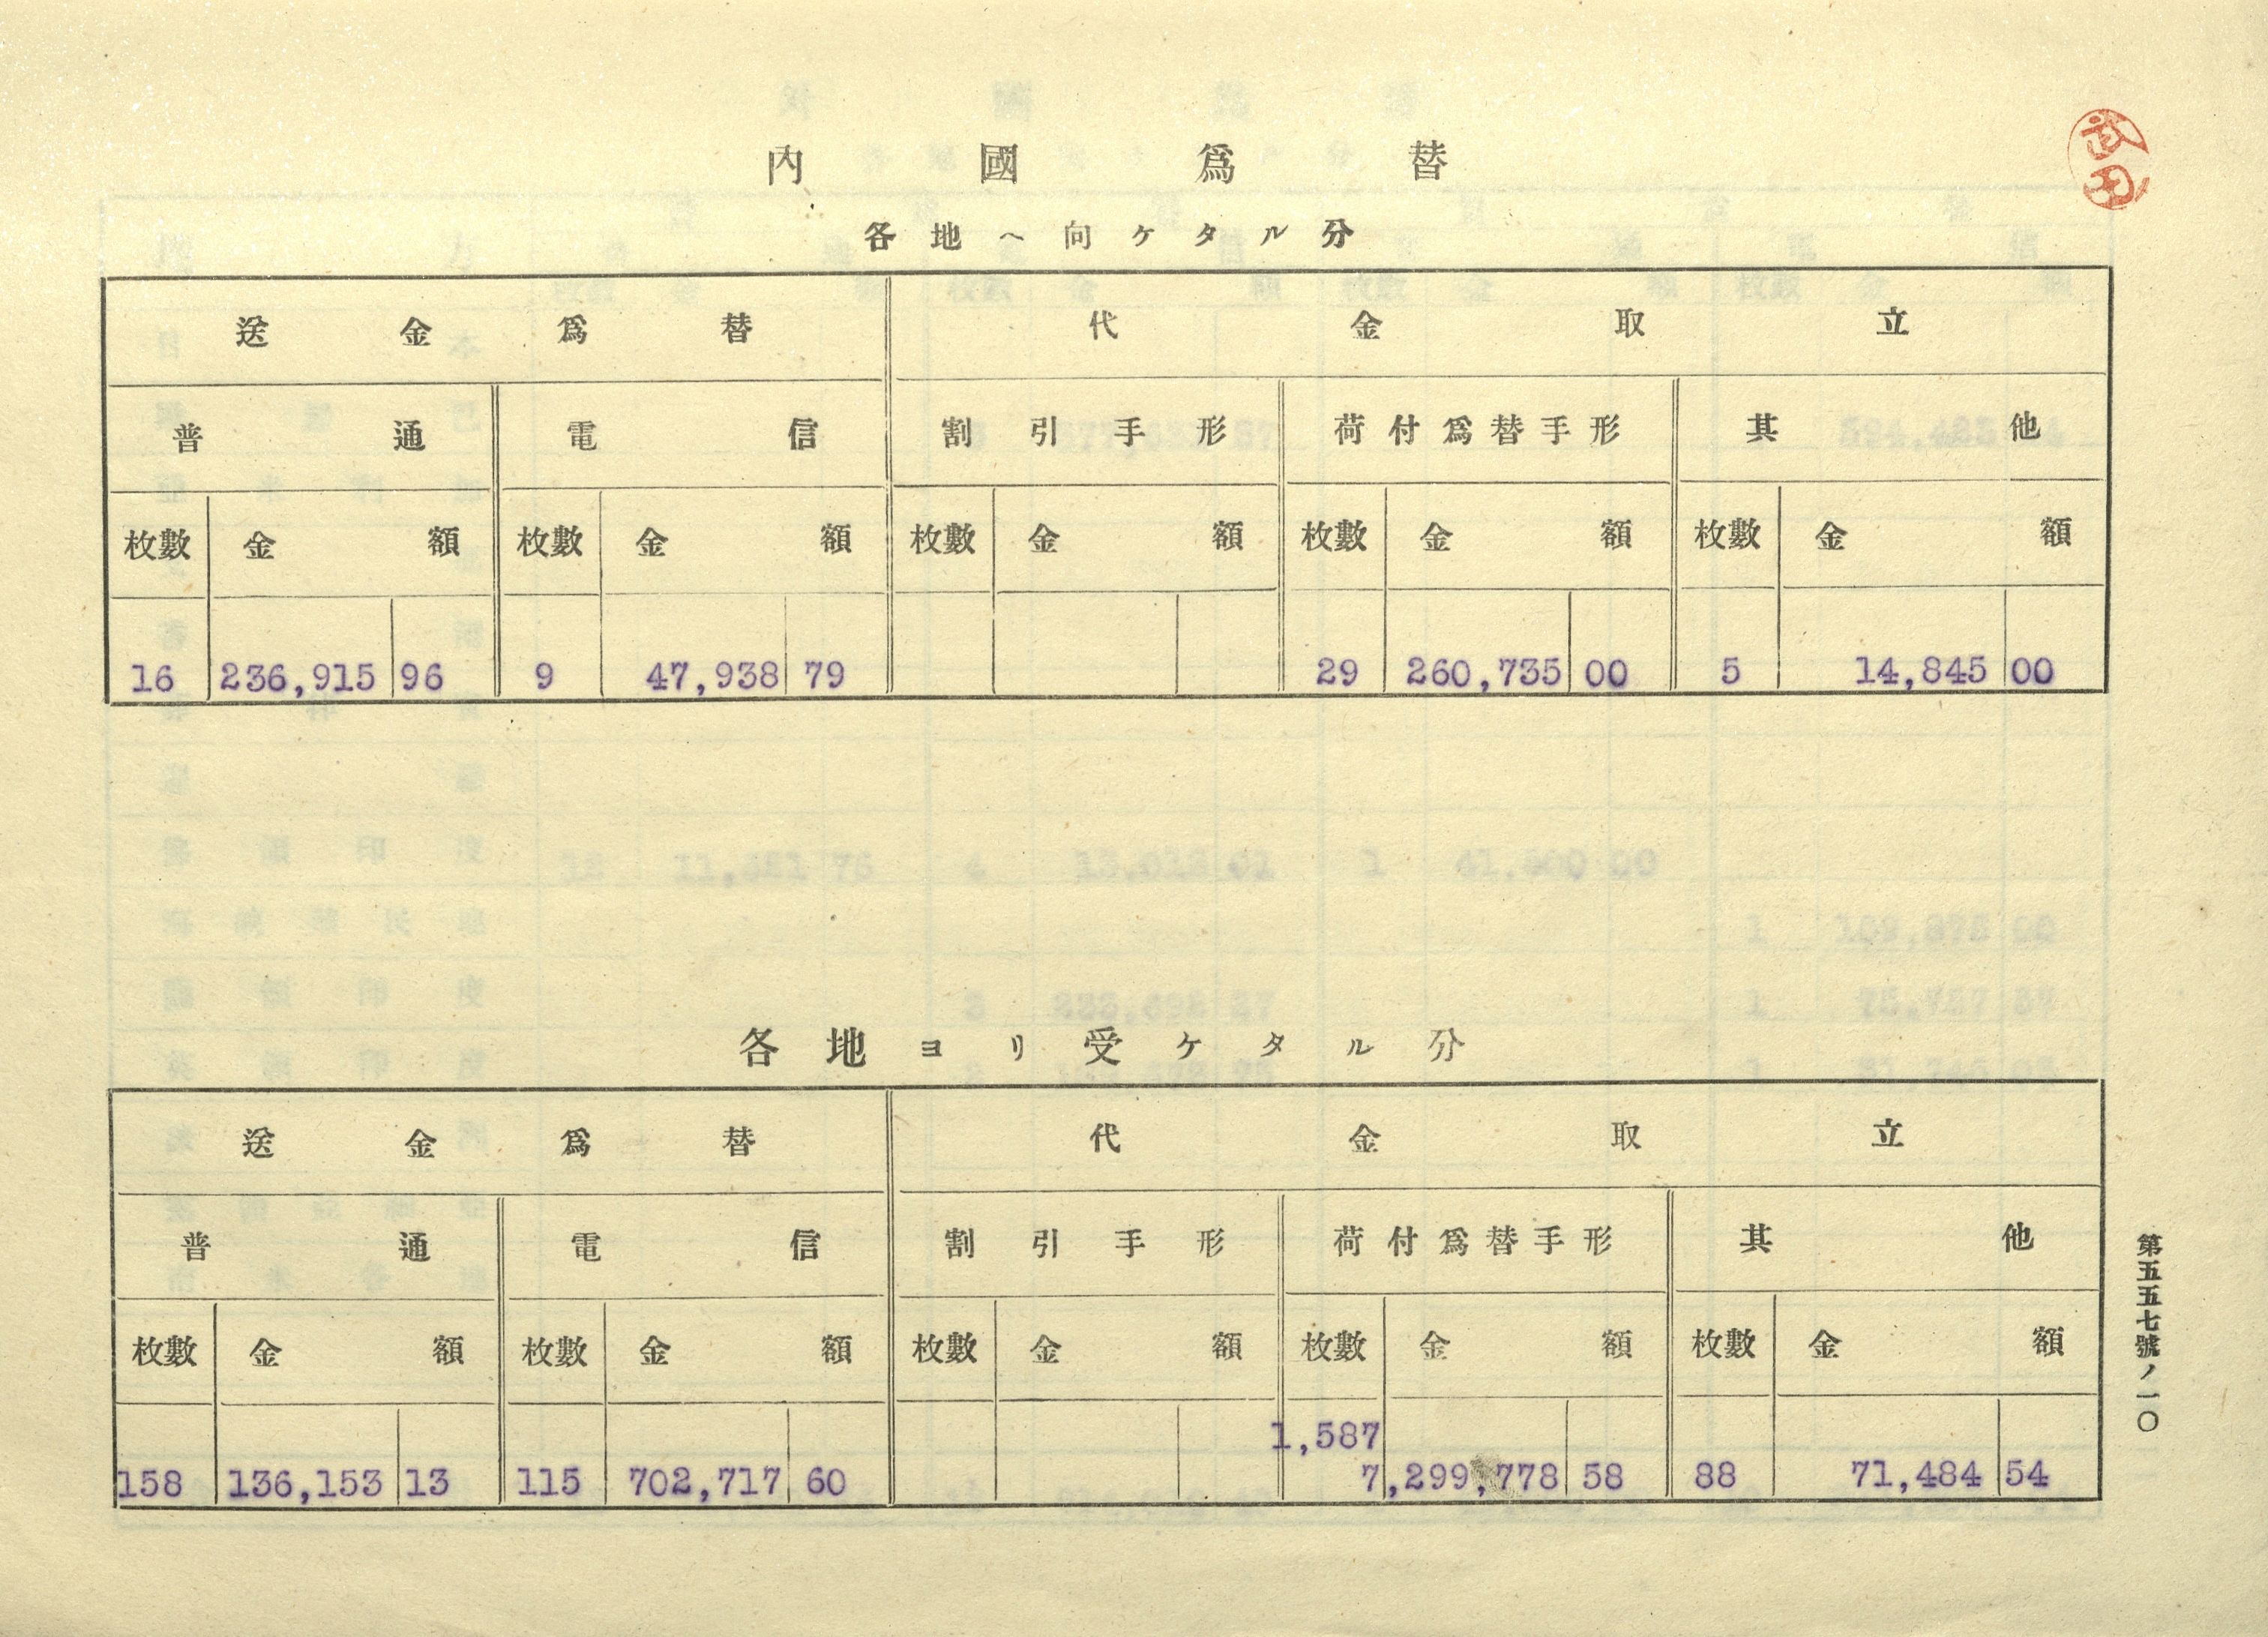 武田
內國爲替
各地ヘ向ケタル分
送金爲替 代金取立
普通 電信 割引手形 荷付爲替手形 其他
枚數 金額 枚數 金額 枚數 金額 枚數 金額 枚數 金額
16 236,915 96 9 47,938 79 29 260,735 00 5 14,845 00
各地ヨリ受ケタル分
送金爲替 代金取立
普通 電信 割引手形 荷付爲替手形 其他
枚數 金額 枚數 金額 枚數 金額 枚數 金額 枚數 金額
1,587
158 136,153 13 115 702,717 60 7,299,778 58 88 71,484 54
第五五七號ノ一〇